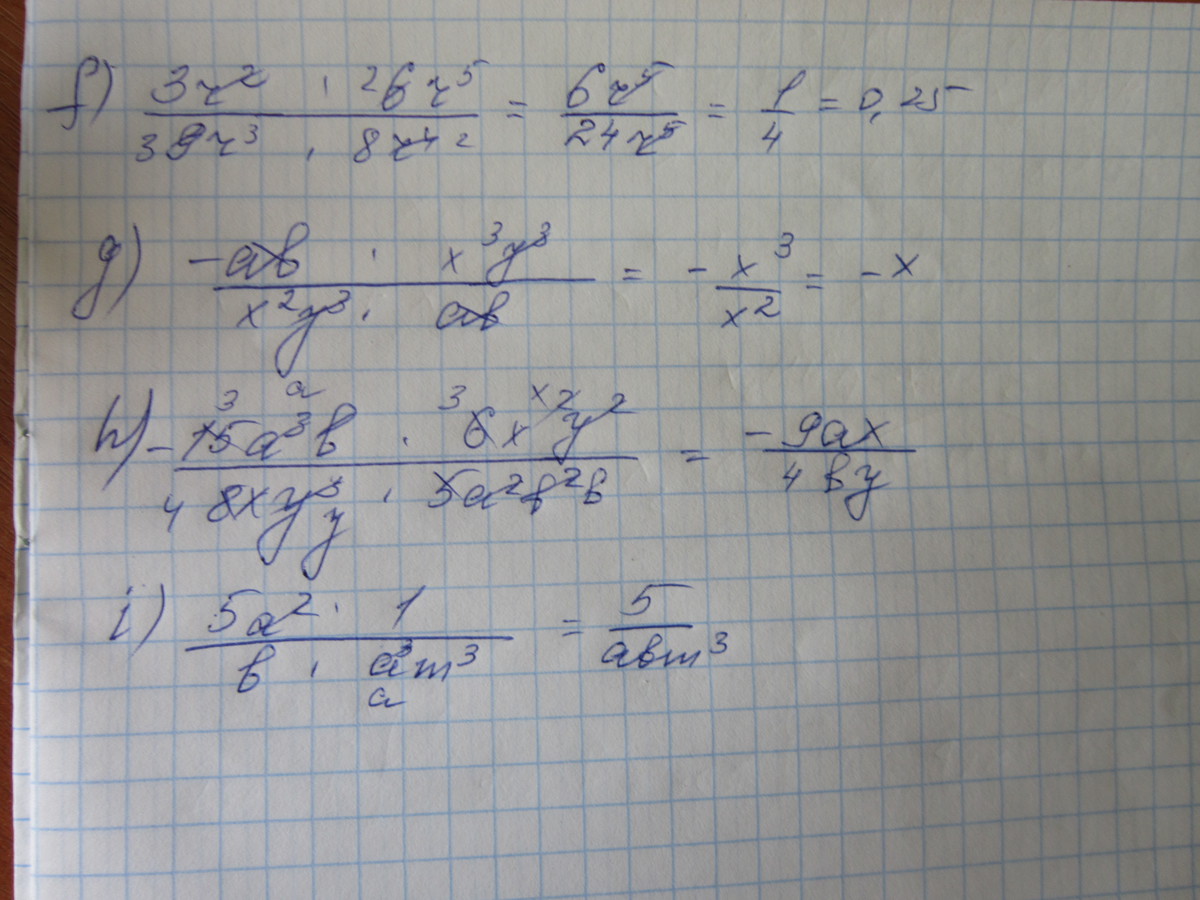 f) 3r² · ²6r⁵ / ₃9r³ · 8r⁴ ² = 6r⁵ / 24r⁵ = 1/4 = 0,25
g) -ab · x³y³ / x²y³ · ab = - x³/x² = -x
h) - ³15a³ ᵃ b · ³6x² ˣ y² / ₄8xy³ y · 5a²b²b = -9ax / 4by
i) 5a² · 1 / b · a³m³ a = 5 / abm³